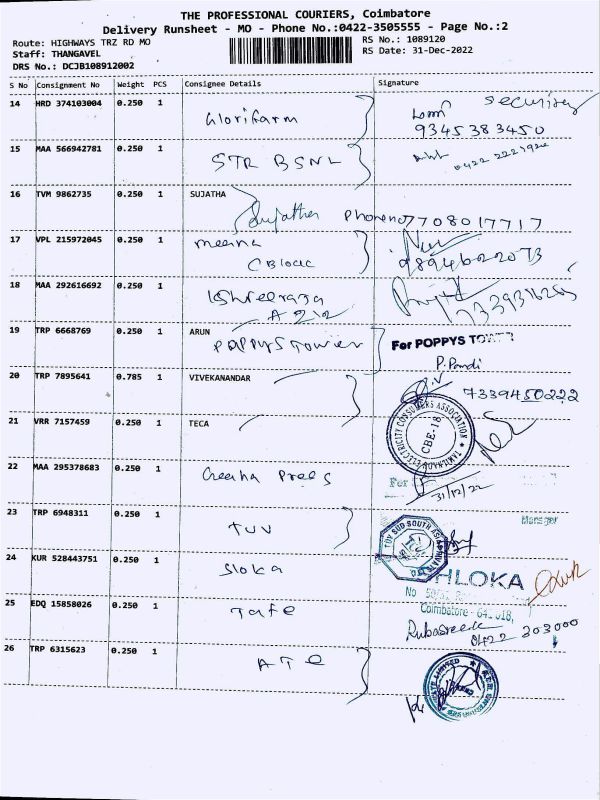 THE PROFESSIONAL COURIERS, Coimbatore
Delivery Runsheet - MO - Phone No.:0422-3505555 - Page No.:2
Route: HIGHWAYS TRZ RD MO
RS No.: 1089120
Staff: THANGAVEL
RS Date: 31-Dec-2022
DRS No.: DCJB108912002
S No Consignment No Weight PCS Consignee Details Signature
14 HRD 374103004 0.250 1 Glorifarm security
9345383450
15 MAA 566942781 0.250 1 STR BSNL
16 TVM 9862735 0.250 1 SUJATHA
Sujatha Phone no 7708017717
17 VPL 215972045 0.250 1 meena
C Block
18 MAA 292616692 0.250 1
A 212
19 TRP 6668769 0.250 1 ARUN
POPPYS Tower
For POPPYS TOWER
P. Pandi
20 TRP 7895641 0.785 1 VIVEKANANDAR
7339450222
TAMILNADU ELECTRICITY CONSUMERS ASSOCIATION
CBE-18
21 VRR 7157459 0.250 1 TECA
22 MAA 295378683 0.250 1 Press
For
31/12/22
Manager
23 TRP 6948311 0.250 1 TUV
TUV SUD SOUTH ASIA
24 KUR 528443751 0.250 1 Sloka
HLOKA
Coimbatore - 641 018,
25 EDQ 15858026 0.250 1 Tafe
0422 303000
26 TRP 6315623 0.250 1 ATE